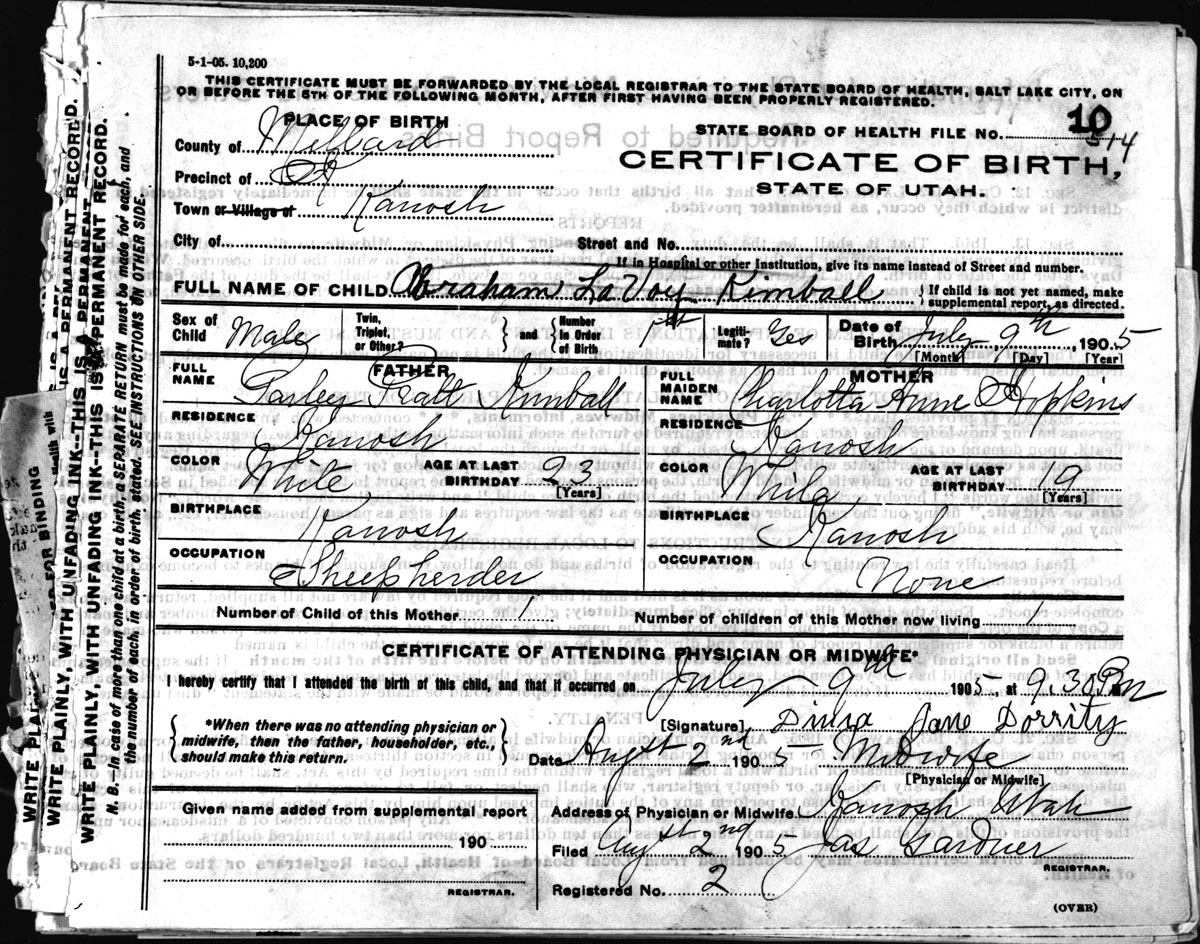 5-1-05. 10,200
THIS CERTIFICATE MUST BE FORWARDED BY THE LOCAL REGISTRAR TO THE STATE BOARD OF HEALTH, SALT LAKE CITY, ON
OR BEFORE THE 5TH OF THE FOLLOWING MONTH, AFTER FIRST HAVING BEEN PROPERLY REGISTERED.
PLACE OF BIRTH
County of Millard
Precinct of
Town or Village of Kanosh
City of
STATE BOARD OF HEALTH FILE No. 10
514
CERTIFICATE OF BIRTH,
STATE OF UTAH.
Street and No.
If in Hospital or other Institution, give its name instead of Street and number.
FULL NAME OF CHILD Abraham LaVoy Kimball { If child is not yet named, make supplemental report, as directed.
Sex of Child Male Twin, Triplet, or Other? } and { Number in Order of Birth 1st Legiti-mate? Yes Date of Birth July 9th, 1905
[Month] [Day] [Year]
FATHER
FULL NAME Parley Pratt Kimball
RESIDENCE Kanosh
COLOR White AGE AT LAST BIRTHDAY 23
[Years]
BIRTHPLACE Kanosh
OCCUPATION Sheepherder
MOTHER
FULL MAIDEN NAME Charlotta Anne Hopkins
RESIDENCE Kanosh
COLOR White AGE AT LAST BIRTHDAY 19
[Years]
BIRTHPLACE Kanosh
OCCUPATION None
Number of Child of this Mother 1 Number of children of this Mother now living 1
CERTIFICATE OF ATTENDING PHYSICIAN OR MIDWIFE*
I hereby certify that I attended the birth of this child, and that it occurred on July 9th 1905, at 9.30 Pm
{ *When there was no attending physician or midwife, then the father, householder, etc., should make this return. }
[Signature] Dinra Jane Dorrity
Date Augst 2nd 1905 Midwife
[Physician or Midwife]
Given name added from supplemental report
190
REGISTRAR.
Address of Physician or Midwife Kanosh Utah
Filed Augst 2nd 1905 Jas Gardner
REGISTRAR.
Registered No. 2
(OVER)
WRITE PLAINLY, WITH UNFADING INK--THIS IS A PERMANENT RECORD.
N. B. In case of more than one child at a birth, a SEPARATE RETURN must be made for each, and
the number of each, in order of birth, stated. SEE INSTRUCTIONS ON OTHER SIDE.